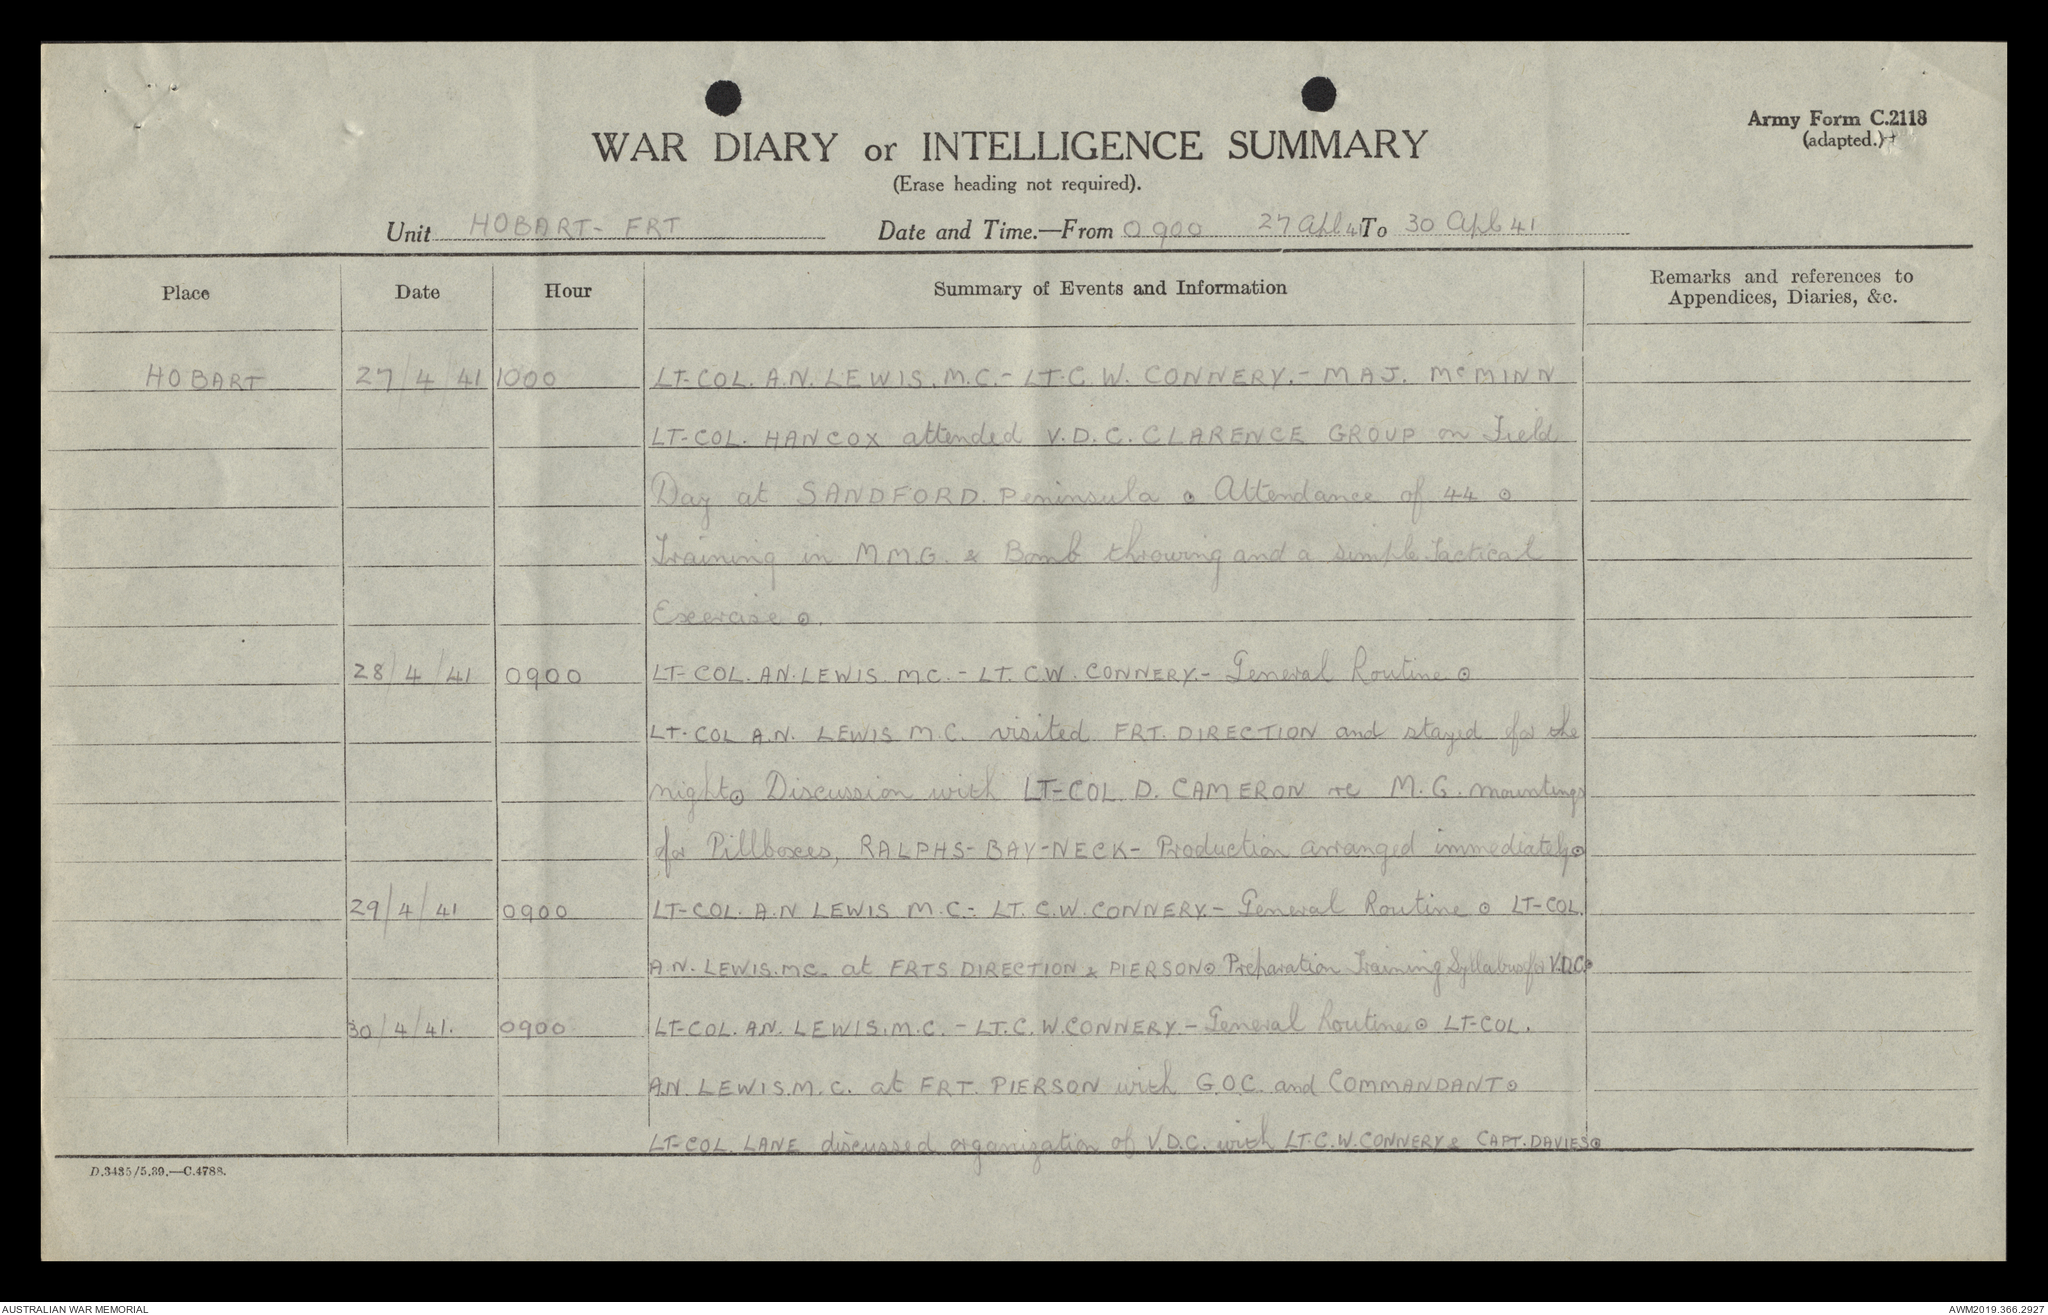 Army Form C.2118
(adapted.)
WAR DIARY or INTELLIGENCE SUMMARY
(Erase heading not required).
Unit HOBART- FRT Date and Time.—From 0900 27 Apl 41 To 30 Apl 41
Place Date Hour Summary of Events and Information Remarks and references to Appendices, Diaries, &c.
HOBART 27/4/41 1000 LT-COL. A.N. LEWIS. M.C.- LT.C.W. CONNERY.- MAJ. McMINN
LT-COL. HANCOX attended V.D.C. CLARENCE GROUP on Field
Day at SANDFORD. Peninsula ⊙ Attendance of 44 ⊙
Training in M.M.G. & Bomb throwing and a simple Tactical
Exercise ⊙.
28/4/41 0900 LT-COL. A.N. LEWIS. M.C. - LT. C.W. CONNERY.- General Routine ⊙
LT-COL A.N. LEWIS M.C. visited FRT. DIRECTION and stayed for the
night⊙ Discussion with LT-COL D. CAMERON re M.G. mountings
for Pillboxes, RALPHS-BAY-NECK- Production arranged immediately⊙
29/4/41 0900 LT-COL. A.N LEWIS M.C.- LT. C.W. CONNERY.- General Routine ⊙ LT-COL.
A.N. LEWIS. M.C. at FRTS DIRECTION & PIERSON⊙ Preparation Training Syllabus for V.D.C⊙
30/4/41. 0900 LT-COL. A.N. LEWIS. M.C. - LT. C.W. CONNERY - General Routine⊙ LT-COL.
A.N. LEWIS. M.C. at FRT. PIERSON with G.O.C. and COMMANDANT⊙
LT-COL. LANE discussed organization of V.D.C. with LT. C.W. CONNERY & CAPT. DAVIES⊙
D.3435/5.39.—C.4788.
AUSTRALIAN WAR MEMORIAL
AWM2019.366.2927